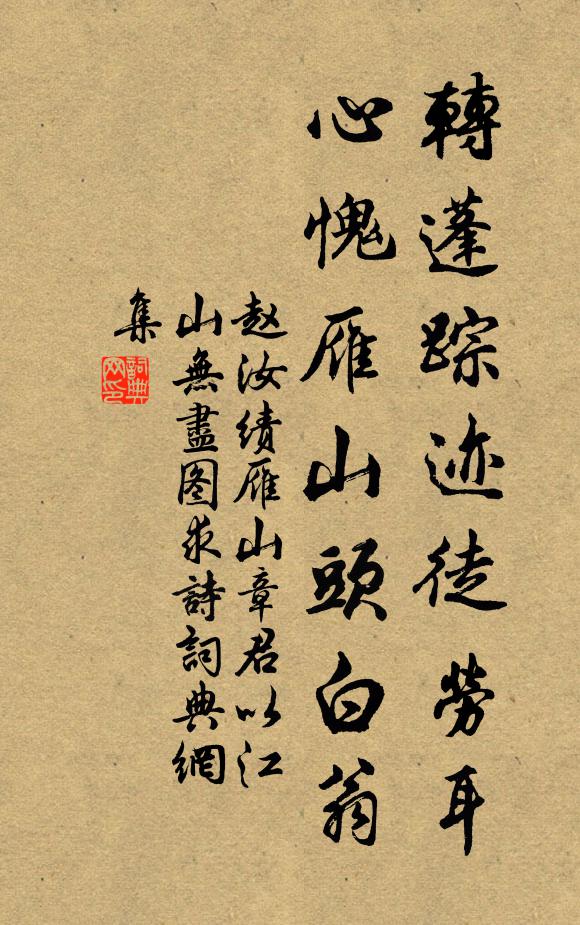 轉蓬踪迹徒勞耳
心愧雁山頭白翁
赵汝績雁山章君以江
山無盡图求詩詞典網
集
詞典
网印